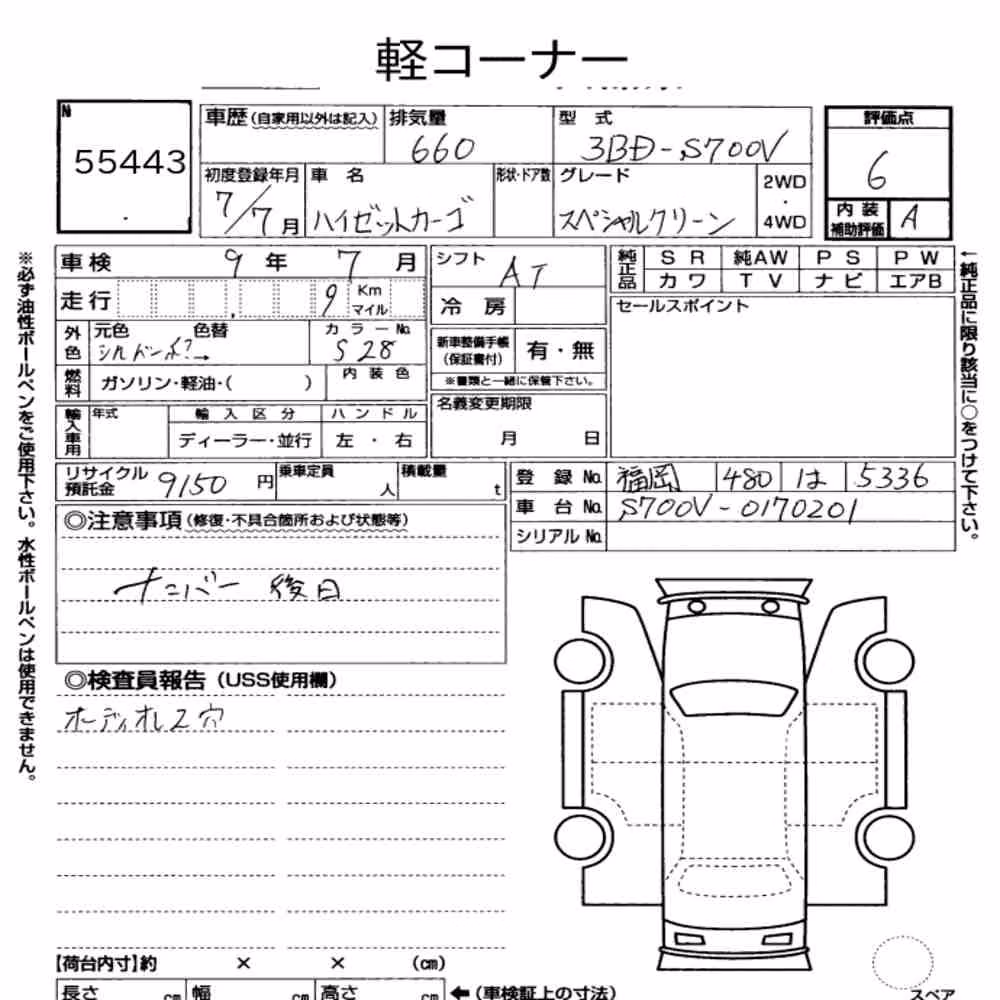 軽コーナー
No
55443
車歴 (自家用以外は記入)
排気量
660
型 式
3BD-S700V
評価点
6
初度登録年月
7/7月
車 名
ハイゼットカーゴ
形状・ドア数
グレード
スペシャルクリーン
2WD
・
4WD
内 装
補助評価
A
車 検
9 年 7 月
シフト
AT
純正品
SR 純AW PS PW
カワ TV ナビ エアB
走 行
9
Km
マイル
冷 房
セールスポイント
外色
元色 色替
→
カラーNo.
S28
新車整備手帳
(保証書付)
有・無
※書類と一緒に保管下さい。
燃料
ガソリン・軽油・( )
内 装 色
名義変更期限
月 日
輸入車用
年式
輸 入 区 分
ハ ン ド ル
ディーラー・並行
左 ・ 右
リサイクル
預託金
9150 円
乗車定員
人
積載量
t
登 録 No.
福岡 480 は 5336
車 台 No.
S700V-0170201
シリアル No.
◎注意事項 (修復・不具合箇所および状態等)
ナンバー 後日
◎検査員報告 (USS使用欄)
オーディオレス穴
【荷台内寸】約 × × (cm)
長さ cm 幅 cm 高さ cm ←(車検証上の寸法)
スペア
※必ず油性ボールペンをご使用下さい。水性ボールペンは使用できません。
←純正品に限り該当に○をつけて下さい。